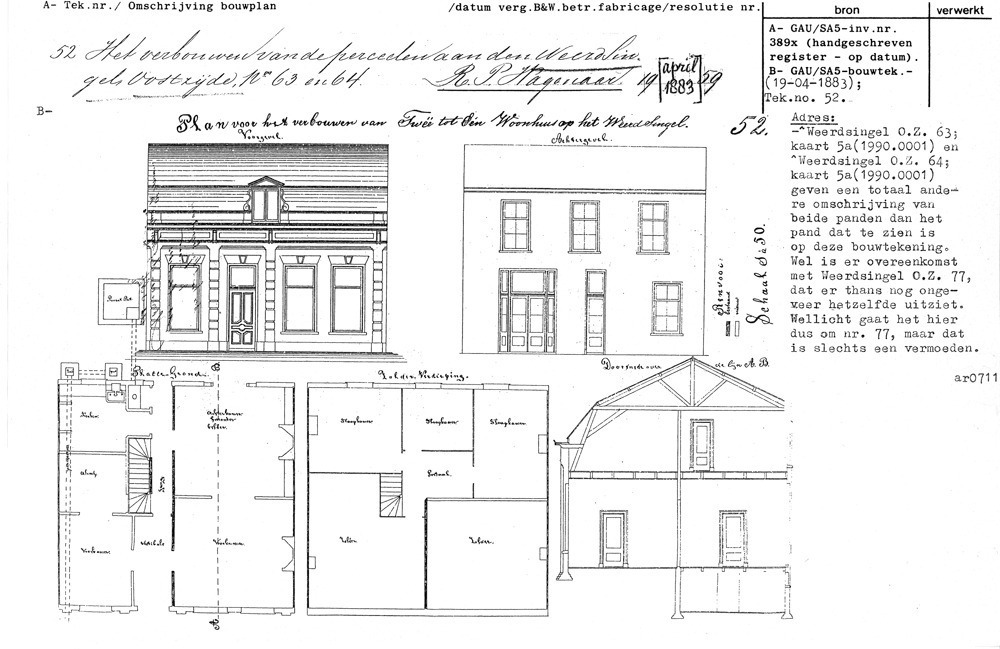 A- Tek.nr./ Omschrijving bouwplan /datum verg.B&W.betr.fabricage/resolutie nr.
bron verwerkt
52 Het verbouwen van de perceelen aan den Weerdsin-
gels Oostzijde, Nos 63 en 64. R. P. Wagenaar. 19 [april 1883] 59
A- GAU/SA5-inv.nr.
389x (handgeschreven
register - op datum).
B- GAU/SA5-bouwtek.-
(19-04-1883);
Tek.no. 52.
B-
Plan voor het verbouwen van Twee tot Één Woonhuis op het Weerd Singel. 52.
Voorgevel. Achtergevel.
Adres:
-^Weerdsingel O.Z. 63;
kaart 5a(1990.0001) en
^Weerdsingel O.Z. 64;
kaart 5a(1990.0001)
geven een totaal ande-
re omschrijving van
beide panden dan het
pand dat te zien is
op deze bouwtekening.
Wel is er overeenkomst
met Weerdsingel O.Z. 77,
dat er thans nog onge-
veer hetzelfde uitziet.
Wellicht gaat het hier
dus om nr. 77, maar dat
is slechts een vermoeden.
ar0711
Renvooi
Schaal 1 à 50.
Platte Grond. B Zolder Verdieping. Doorsnede over de lijn A.B.
Keuken
Slaapkamer Slaapkamer Slaapkamer
Portaal
Voorkamer Vestibule Voorkamer
Zolder Zolder
A.